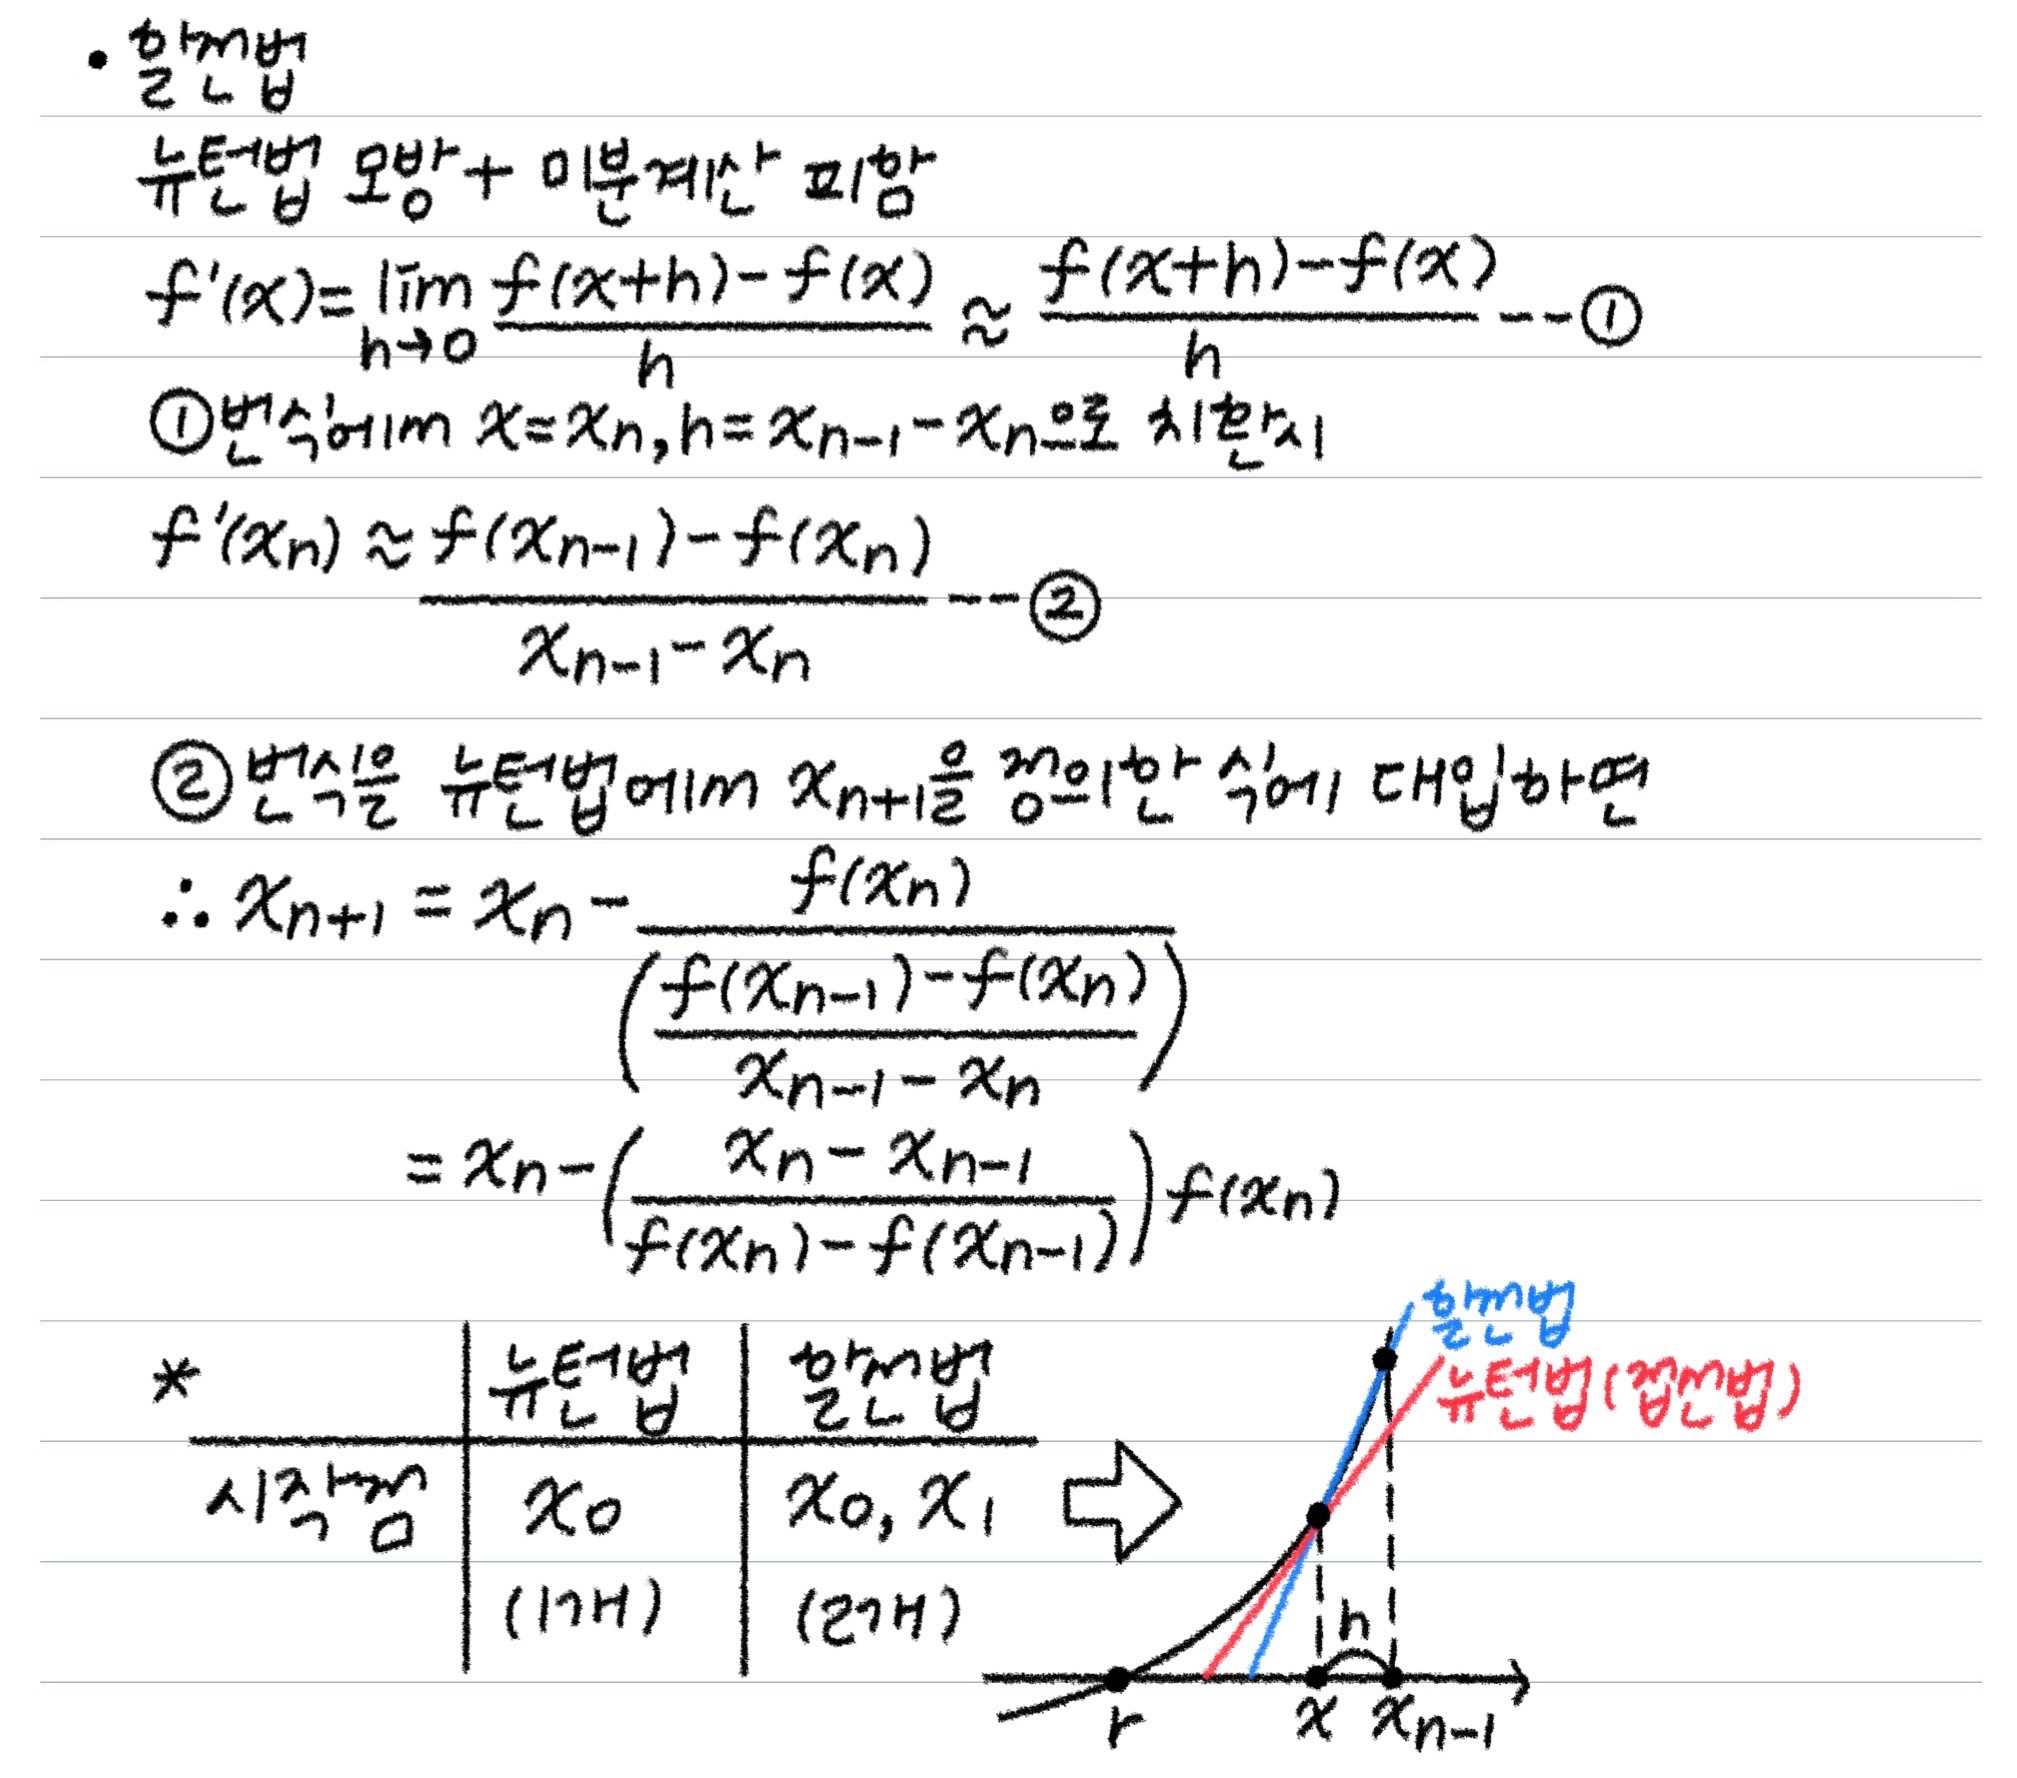 • 할선법
뉴턴법 모방 + 미분계산 피함
f'(x) = lim_{h→0} (f(x+h) - f(x))/h ≈ (f(x+h) - f(x))/h --- ①
①번식에서 x = x_n, h = x_{n-1} - x_n으로 치환시
f'(x_n) ≈ (f(x_{n-1}) - f(x_n))/(x_{n-1} - x_n) --- ②
②번식을 뉴턴법에서 x_{n+1}을 정의한 식에 대입하면
∴ x_{n+1} = x_n - f(x_n)/((f(x_{n-1}) - f(x_n))/(x_{n-1} - x_n))
= x_n - ((x_n - x_{n-1})/(f(x_n) - f(x_{n-1}))) f(x_n)
* 뉴턴법 할선법
시작점 x_0 x_0, x_1 ⇨
(1개) (2개)
할선법
뉴턴법(접선법)
h
r x x_{n-1}